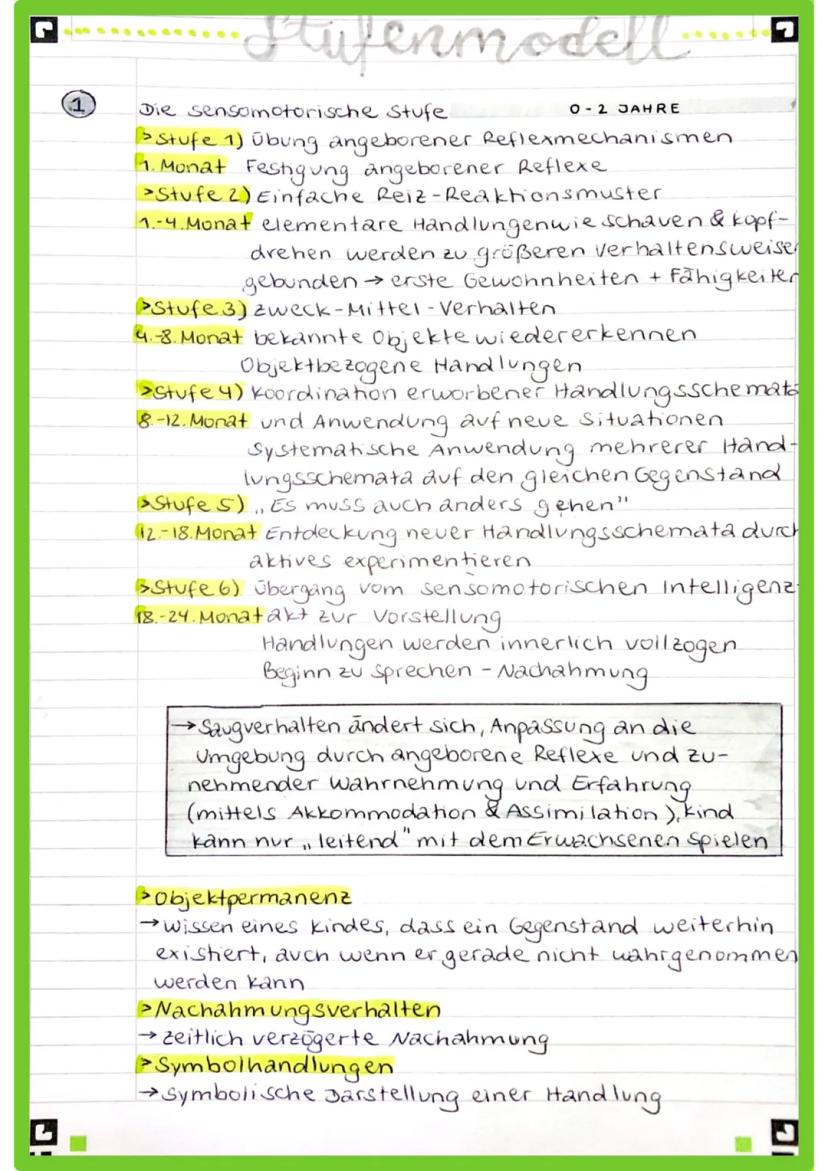 Stufenmodell
1 Die sensomotorische Stufe 0-2 JAHRE
>Stufe 1) Übung angeborener Reflexmechanismen
1. Monat Festigung angeborener Reflexe
>Stufe 2) Einfache Reiz-Reaktionsmuster
1.-4. Monat elementare Handlungen wie schauen & kopf-
drehen werden zu größeren Verhaltensweisen
gebunden → erste Gewohnheiten + Fähigkeiten
>Stufe 3) Zweck-Mittel-Verhalten
4.-8. Monat bekannte Objekte wiedererkennen
Objektbezogene Handlungen
>Stufe 4) Koordination erworbener Handlungsschemata
8.-12. Monat und Anwendung auf neue Situationen
Systematische Anwendung mehrerer Hand-
lungsschemata auf den gleichen Gegenstand
>Stufe 5) „Es muss auch anders gehen"
12.-18. Monat Entdeckung neuer Handlungsschemata durch
aktives experimentieren
>Stufe 6) Übergang vom sensomotorischen Intelligenz-
18.-24. Monat akt zur Vorstellung
Handlungen werden innerlich vollzogen
Beginn zu sprechen - Nachahmung
→ Saugverhalten ändert sich, Anpassung an die
Umgebung durch angeborene Reflexe und zu-
nehmender Wahrnehmung und Erfahrung
(mittels Akkommodation & Assimilation), Kind
kann nur „leitend" mit dem Erwachsenen spielen
>Objektpermanenz
→ wissen eines Kindes, dass ein Gegenstand weiterhin
existiert, auch wenn er gerade nicht wahrgenommen
werden kann
>Nachahmungsverhalten
→ zeitlich verzögerte Nachahmung
>Symbolhandlungen
→ symbolische Darstellung einer Handlung